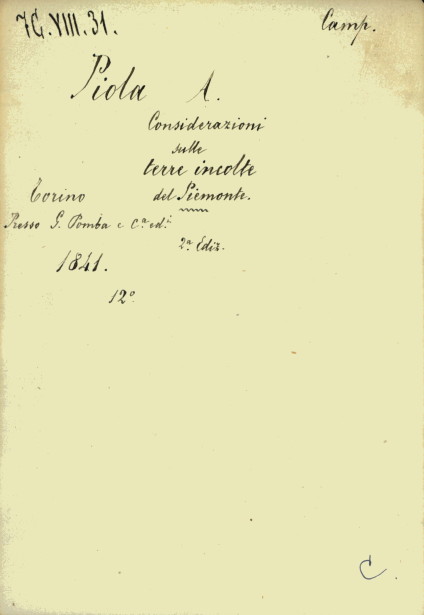 7G.VIII.31.
Camp.
Piola A.
Considerazioni
sulle
terre incolte
del Piemonte.
Torino
Presso G. Pomba e C.ª ed.i
2ª Ediz.
1841.
12°
C